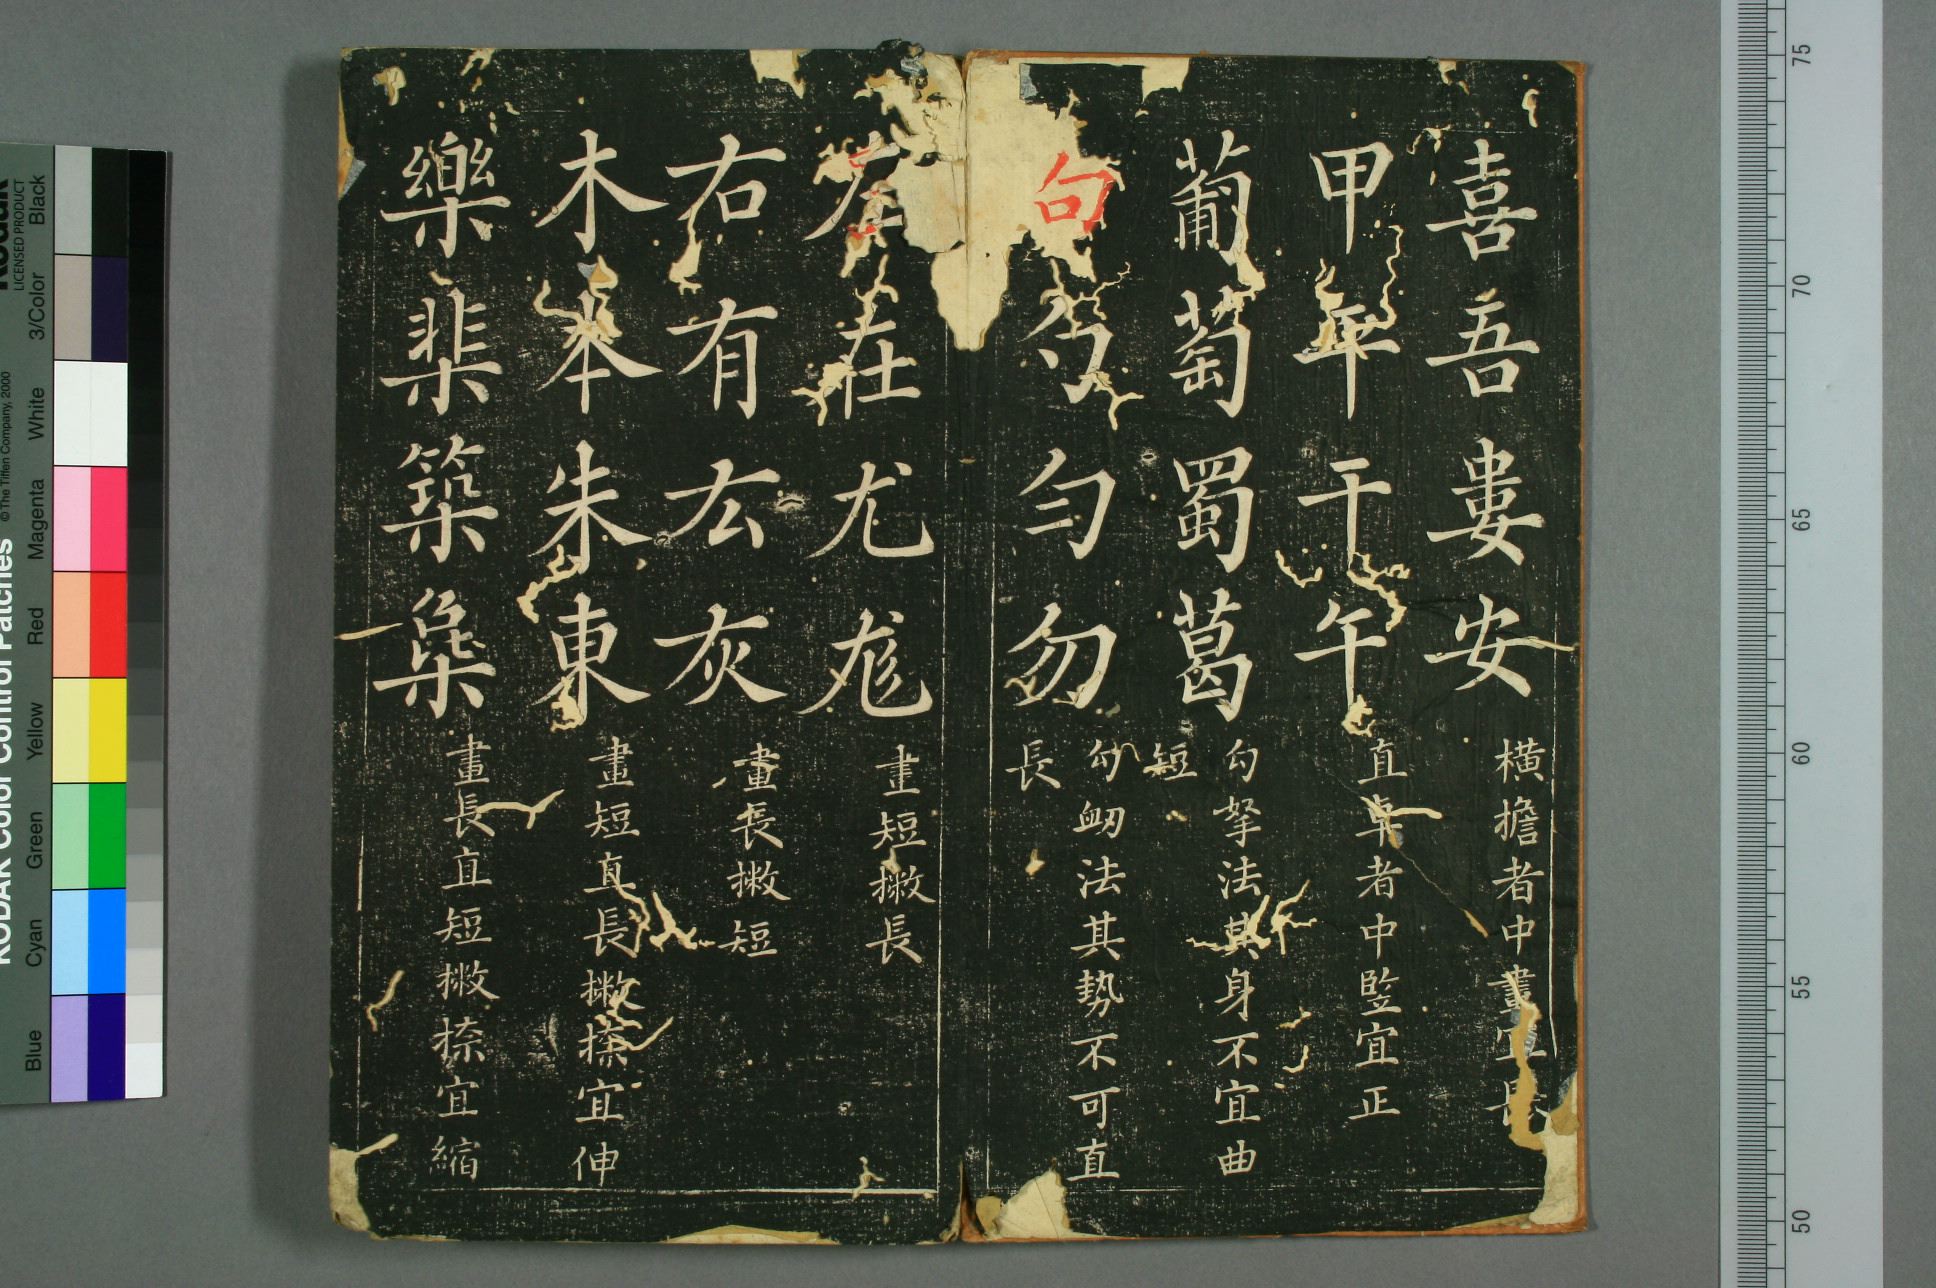 喜吾婁安
橫擔者中畫宜長
甲年干午
直卓者中竪宜正
葡萄蜀葛
勾拏法其身不宜曲
短
句勺勻勿
勾衂法其勢不可直
長
左在尤尨
畫短撇長
右有厷灰
畫長撇短
木本朱東
畫短直長撇捺宜伸
樂棐築棻
畫長直短撇捺宜縮
KODAK Color Control Patches
© The Tiffen Company, 2000
Kodak
LICENSED PRODUCT
Blue
Cyan
Green
Yellow
Red
Magenta
White
3/Color
Black
75
70
65
60
55
50